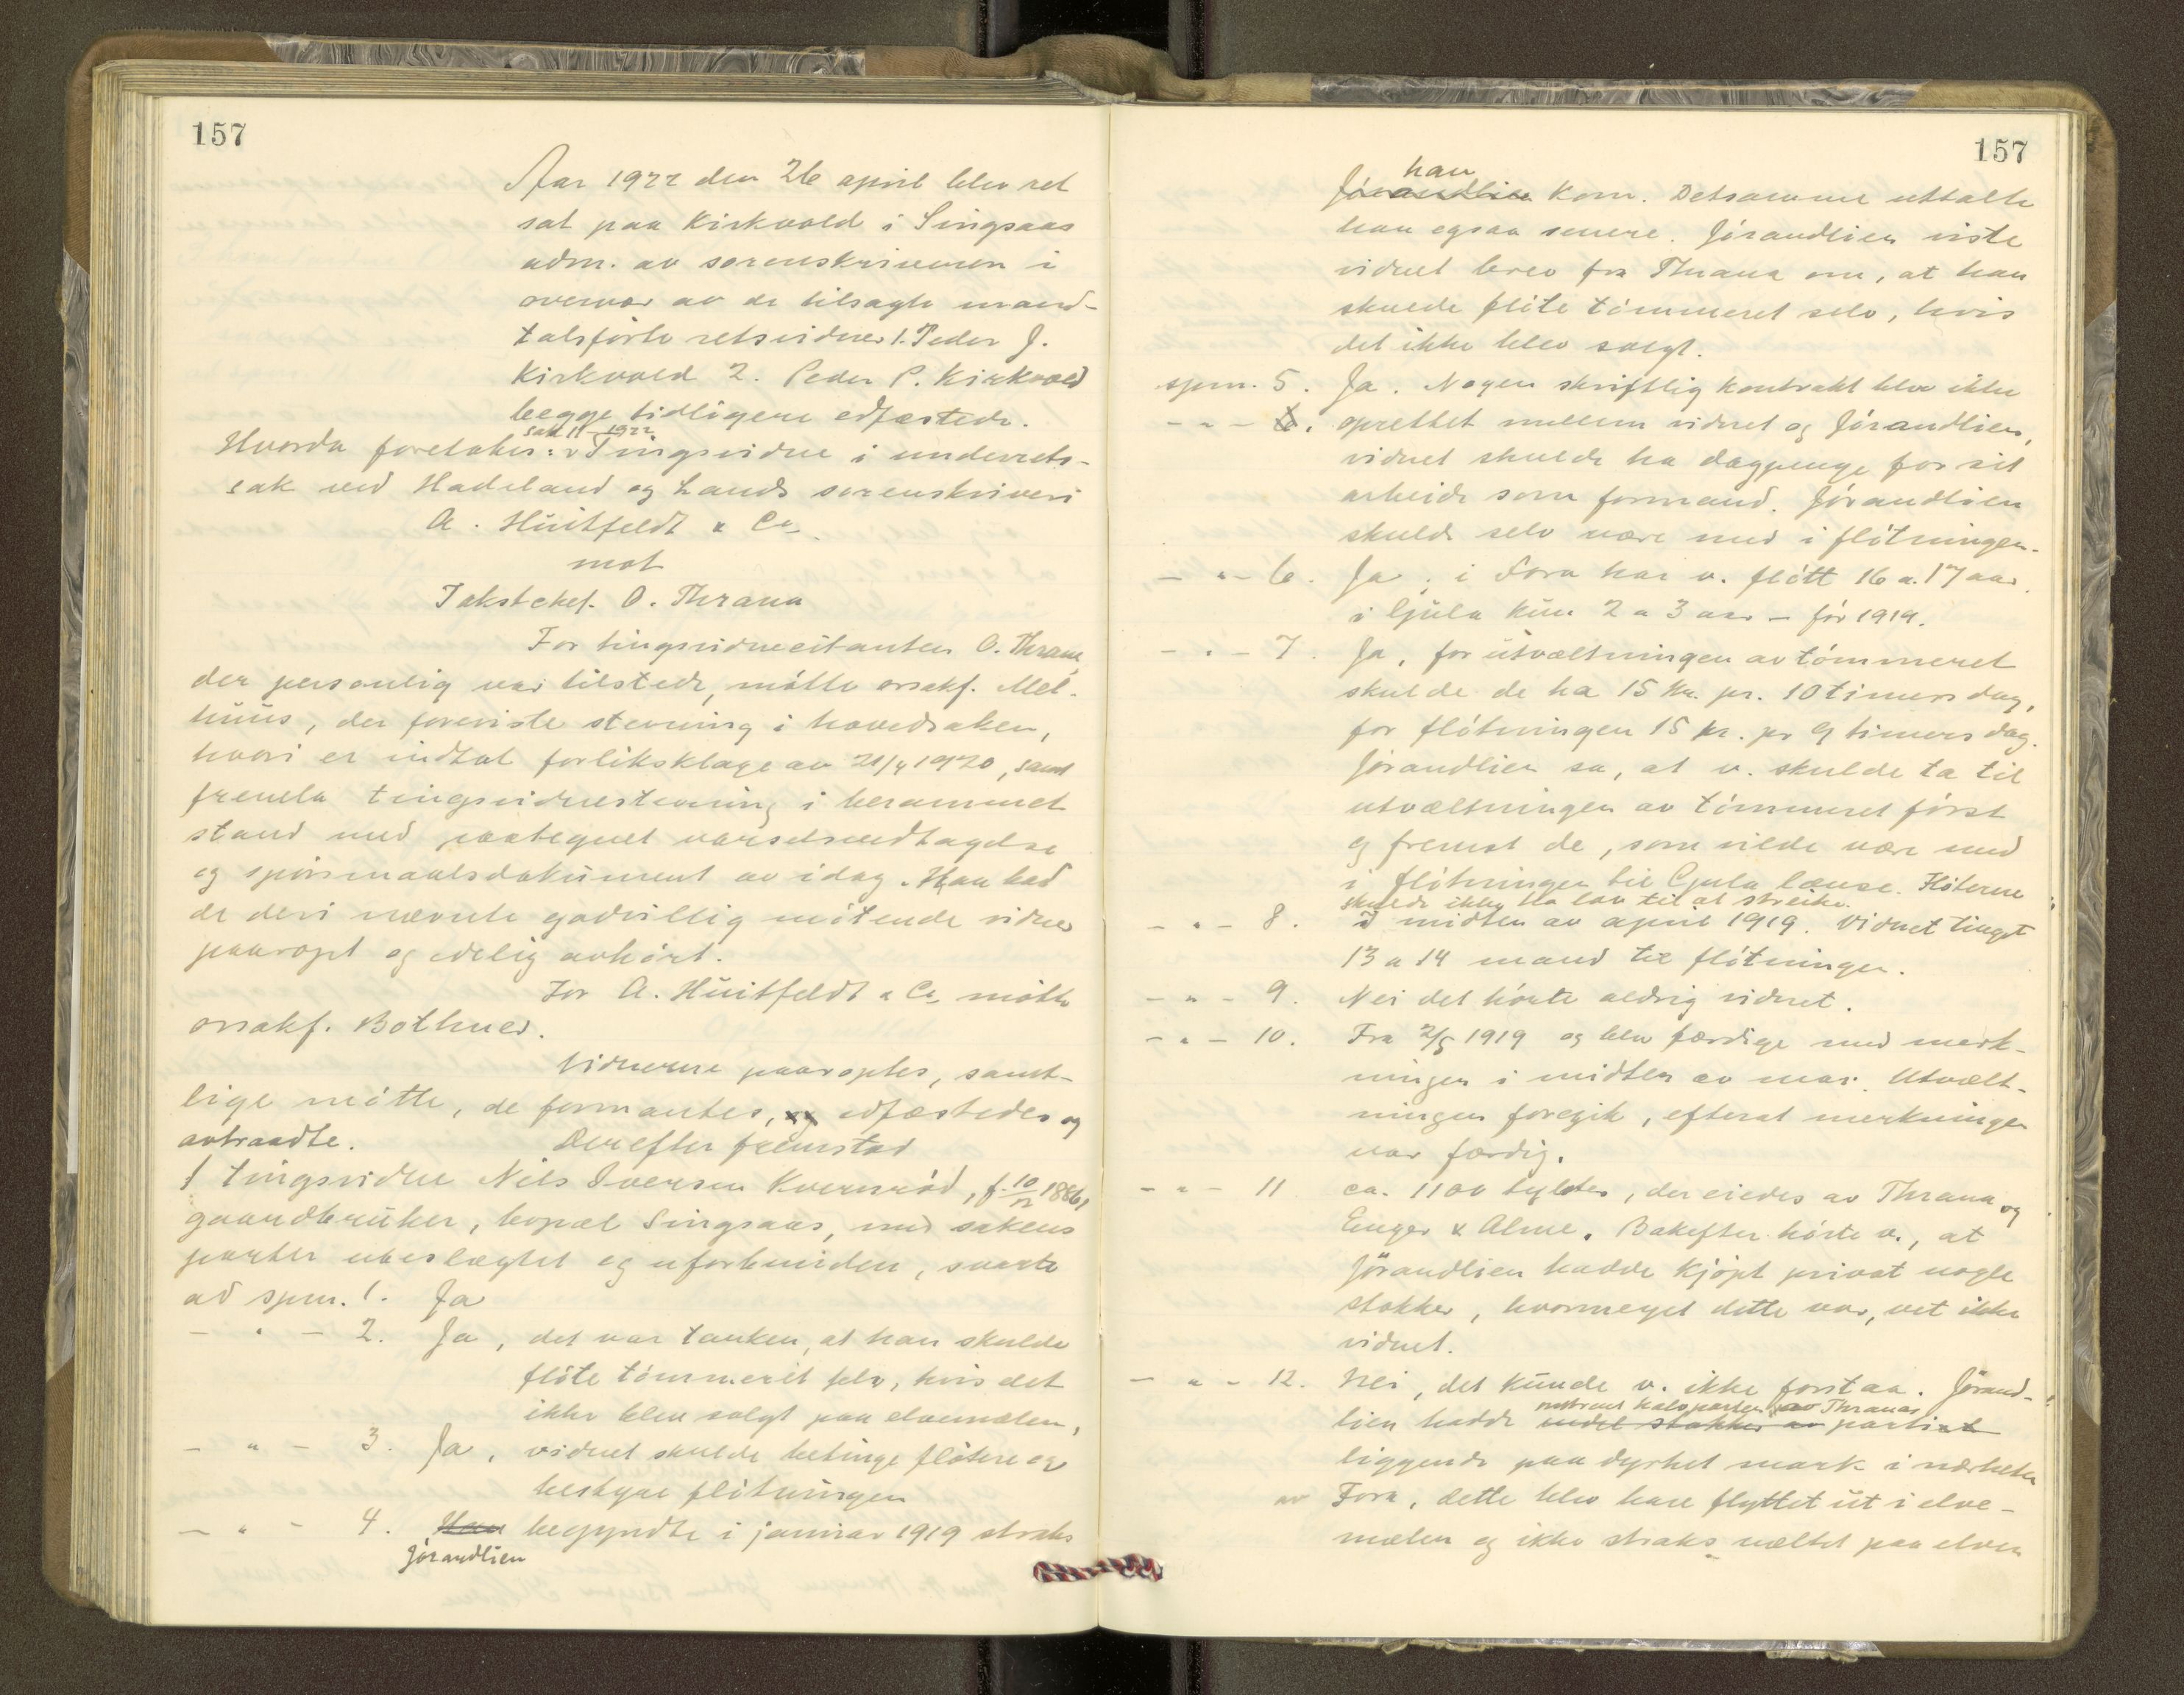 157
Aar 1922 den 26 april blev ret
sat paa Kirkvold i Singsaas
adm. av sorenskriveren i
overvær av de tilsagte mand-
talsførte retsvidner 1. Peder J.
Kirkvold 2. Peder P. Kirkvold
begge tidligere edfæstede.
sak 11 1922
Hvorda foretokes: Tingsvidne i underrets-
sak ved Hadeland og Lands sorenskriveri
A. Huitfeldt & Co
mot
O. Thrana
For tingsvidnecitanten O. Thrane,
der personlig var tilstede, møtte orsakf. Mel-
huus, der foreviste stevning i hovedsaken,
hvori er indtat forliksklage av 21/4 1920, samt
fremla tingsvidnestevning i berammet
stand med paategnet varselsvedtagelse
og spørsmaalsdokument av idag. Han bad
de deri nævnte godvillig møtende vidner
paaropt og edelig avhørt.
For A. Huitfeldt & Co møtte
orsakf. Bothner.
Vidnerne paaroptes, samt-
lige møtte, de formantes, og edfæstedes og
avtraadte. Derefter fremstod
1 tingsvidne Nils Iversen Kvernrød, f. 10/12 1886,
gaardbruker, bopæl Singsaas, med sakens
parter ubeslægtet og uforbunden, svarte
ad spm. 1. Ja
- " - 2. Ja, det var tanken, at han skulde
fløte tømmeret selv, hvis det
ikke blev solgt paa elvemælen,
- " - 3. Ja, vidnet skulde betinge fløtere og
bestyre fløtningen
- " - 4. Han begyndte i januar 1919 straks
Jørandlien
157
han
Jørandlien kom. Detsamme uttalte
han ogsaa senere. Jørandlien viste
vidnet brev fra Thrana om, at han
skulde fløte tømmeret selv, hvis
det ikke blev solgt.
spm. 5. Ja. Nogen skriftlig kontrakt blev ikke
- " - 6. oprettet mellem vidnet og Jørandlien,
vidnet skulde ha dagpenge for sit
arbeide som formand. Jørandlien
skulde selv være med i fløtningen.
- " - 6. Ja, i Fora har v. fløtt 16 a 17 aar,
i Gula kun 2 a 3 aar - før 1919.
- " - 7. Ja, for utvæltningen av tømmeret
skulde de ha 15 kr. pr. 10 timers dag,
for fløtningen 15 kr. pr 9 timers dag.
Jørandlien sa, at v. skulde ta til
utvæltningen av tømmeret først
og fremst de, som vilde være med
i fløtningen til Gula lænse. Fløterne
skulde ikke ha lov til at streike.
- " - 8. I midten av april 1919. Vidnet tinget
13 a 14 mand til fløtningen.
- " - 9. Nei det hørte aldrig vidnet.
- " - 10. Fra 2/5 1919 og blev færdige med merk-
ningen i midten av mai. Utvælt-
ningen foregik, efterat merkningen
var færdig.
- " - 11 ca. 1100 tylvter, der eiedes av Thrana og
Enger & Alme. Bakefter hørte v., at
Jørandlien hadde kjøpt privat nogle
stokker, hvormeget dette var, vet ikke
vidnet.
- " - 12. Nei, det kunde v. ikke forstaa. Jørand-
halvparten av Thranas
lien hadde endel stokker av partiet
liggende paa dyrket mark i nærheten
av Fora, dette blev bare flyttet ut i elve-
mælen og ikke straks væltet paa elven